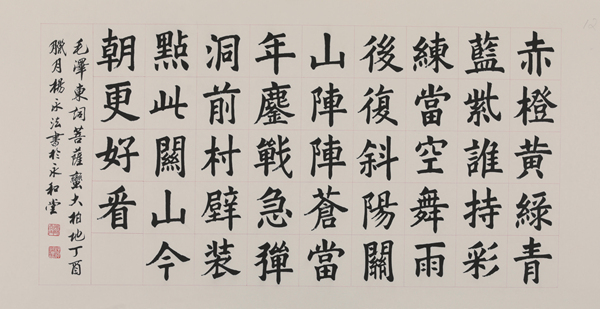 赤橙黃綠青
藍紫誰持彩
練當空舞雨
後復斜陽關
山陣陣蒼當
年鏖戰急彈
洞前村壁装
點此關山今
朝更好看
毛澤東詞菩薩蠻大柏地丁酉
臘月楊永法書於永和堂